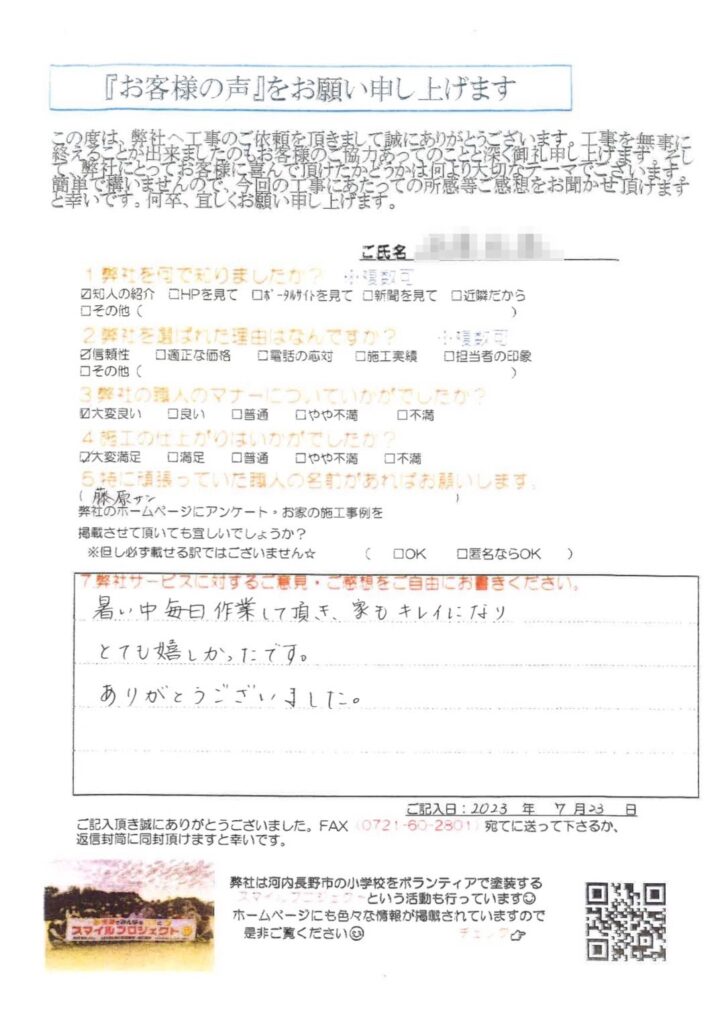 『お客様の声』をお願い申し上げます
この度は、弊社へ工事のご依頼を頂きまして誠にありがとうございます。工事を無事に
終えることが出来ましたのもお客様のご協力あってのことと深く御礼申し上げます。そし
て、弊社にとってお客様に喜んで頂けたかどうかは何より大切なテーマでございます。
簡単で構いませんので、今回の工事にあたっての所感等ご感想をお聞かせ頂けます
と幸いです。何卒、宜しくお願い申し上げます。
ご氏名
1 弊社を何で知りましたか? ※複数可
☑知人の紹介 □HPを見て □ポータルサイトを見て □新聞を見て □近隣だから
□その他 ( )
2 弊社を選ばれた理由はなんですか? ※複数可
☑信頼性 □適正な価格 □電話の応対 □施工実績 □担当者の印象
□その他 ( )
3 弊社の職人のマナーについていかがでしたか?
☑大変良い □良い □普通 □やや不満 □不満
4 施工の仕上がりはいかがでしたか?
☑大変満足 □満足 □普通 □やや不満 □不満
5 特に頑張っていた職人の名前があればお願いします。
( 藤原サン )
弊社のホームページにアンケート・お家の施工事例を
掲載させて頂いても宜しいでしょうか?
※但し必ず載せる訳ではございません☆ ( □OK □匿名ならOK )
7.弊社サービスに対するご意見・ご感想をご自由にお書きください。
暑い中毎日作業して頂き、家もキレイになり
とても嬉しかったです。
ありがとうございました。
ご記入日:2023 年 7月23 日
ご記入頂き誠にありがとうございました。FAX (0721-60-2801) 宛てに送って下さるか、
返信封筒に同封頂けますと幸いです。
弊社は河内長野市の小学校をボランティアで塗装する
スマイルプロジェクトという活動も行っています☺
ホームページにも色々な情報が掲載されていますので
是非ご覧ください☺ チェック👉
スマイルプロジェクト